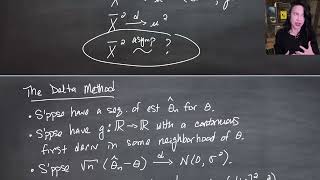 X̄² →d μ²
X̄² asymp ~ ?
The Delta Method
• S'ppse have a seq. of est θ̂n for θ.
• S'ppse have g: ℝ→ℝ with a continuous
first deriv in some neighborhood of θ.
• S'ppse √n (θ̂n-θ) →d N(0, σ²).